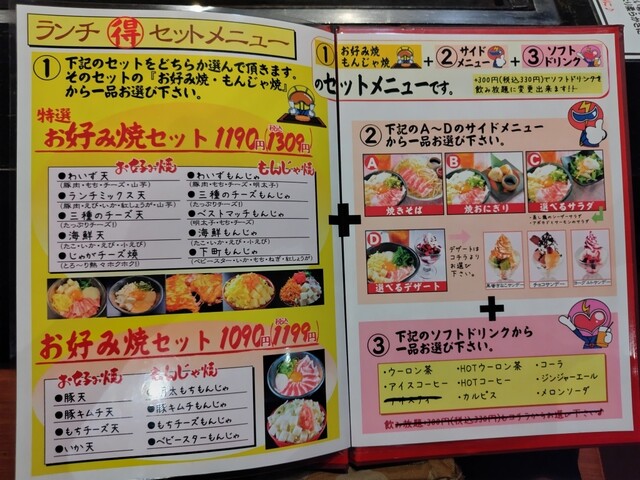 ランチ 得 セットメニュー
① 下記のセットをどちらか選んで頂きます。
そのセットの『お好み焼・もんじゃ焼』
から一品お選び下さい。
特選
お好み焼セット 1190円 税込1309円
お好み焼
●わいず天
(豚肉・もち・チーズ・山芋)
●ランチミックス天
(豚肉・えび・いか・紅しょうが・山芋)
●三種のチーズ天
(たっぷりチーズ!)
●海鮮天
(たこ・いか・えび・小えび)
●じゃがチーズ焼
(とろ~り熱々ホクホク!)
もんじゃ焼
●わいずもんじゃ
(豚肉・もち・チーズ・明太子)
●三種のチーズもんじゃ
(たっぷりチーズ!)
●ベストマッチもんじゃ
(もち・チーズ・明太子)
●海鮮もんじゃ
(たこ・いか・えび・小えび)
●下町もんじゃ
(ベビースター・いか・もち・ねぎ・紅しょうが)
お好み焼セット 1090円 税込1199円
お好み焼
●豚天
●豚キムチ天
●もちチーズ天
●いか天
もんじゃ焼
太もちもんじゃ
●豚キムチもんじゃ
●もちチーズもんじゃ
●ベビースターもんじゃ
① お好み焼 もんじゃ焼 + ② サイドメニュー + ③ ソフトドリンク
のセットメニューです。
+300円(税込330円)でソフトドリンクを
飲み放題に変更出来ます!!
+
② 下記のA～Dのサイドメニュー
から一品お選び下さい。
A 焼きそば
B 焼おにぎり
C 選べるサラダ
D 選べるデザート
デザートは
コチラより
お選び
下さい。
+
③ 下記のソフトドリンクから
一品お選び下さい。
・ウーロン茶
・HOTウーロン茶
・コーラ
・アイスコーヒー
・HOTコーヒー
・ジンジャーエール
・アイスティー
・カルピス
・メロンソーダ
飲み放題+300円(税込330円)もコチラからお選び下さい